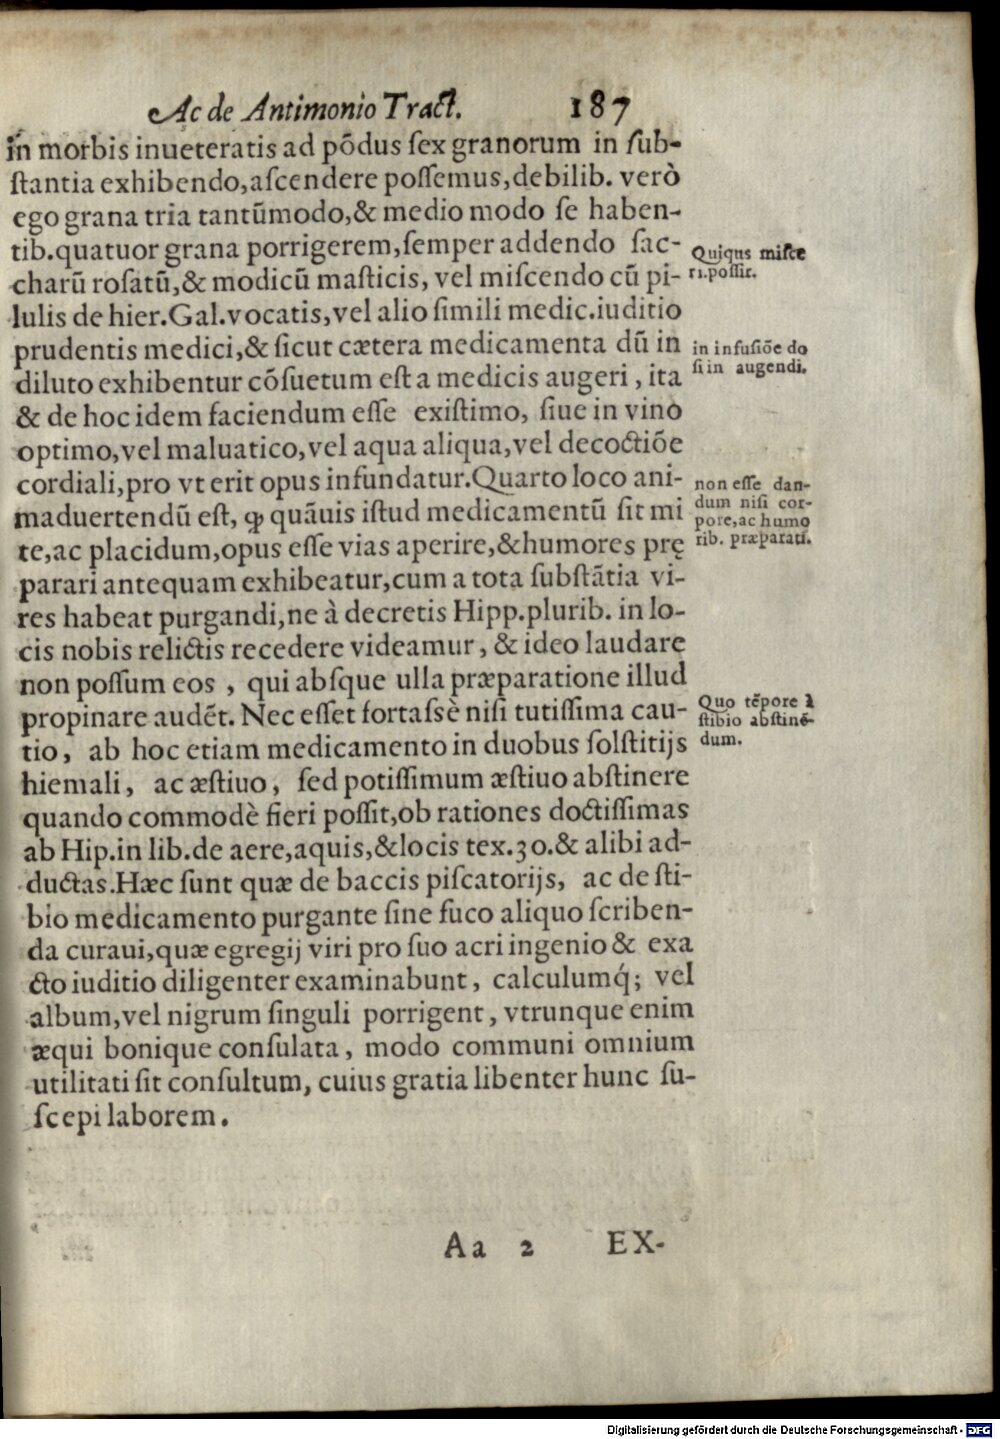 Ac de Antimonio Tract. 187
in morbis inueteratis ad põdus ſex granorum in ſub-
ſtantia exhibendo,aſcendere poſſemus,debilib. verò
ego grana tria tantũmodo,& medio modo ſe haben-
tib.quatuor grana porrigerem,ſemper addendo ſac-
charũ roſatũ,& modicũ maſticis, vel miſcendo cũ pi-
lulis de hier.Gal.vocatis,vel alio ſimili medic.iuditio
prudentis medici,& ſicut cætera medicamenta dũ in
diluto exhibentur cõſuetum eſt a medicis augeri, ita
& de hoc idem faciendum eſſe exiſtimo, ſiue in vino
optimo,vel maluatico,vel aqua aliqua,vel decoctiõe
cordiali,pro vt erit opus infundatur.Quarto loco ani-
maduertendũ eſt, ꝙ quãuis iſtud medicamentũ ſit mi
te,ac placidum,opus eſſe vias aperire,&humores prę
parari antequam exhibeatur,cum a tota ſubſtãtia vi-
res habeat purgandi,ne à decretis Hipp.plurib. in lo-
cis nobis relictis recedere videamur, & ideo laudare
non poſſum eos, qui abſque ulla præparatione illud
propinare audẽt. Nec eſſet fortaſsè niſi tutiſſima cau-
tio, ab hoc etiam medicamento in duobus ſolſtitijs
hiemali, ac æſtiuo, ſed potiſſimum æſtiuo abſtinere
quando commodè fieri poſſit,ob rationes doctiſſimas
ab Hip.in lib.de aere,aquis,&locis tex.30.& alibi ad-
ductas.Hæc ſunt quæ de baccis piſcatorijs, ac de ſti-
bio medicamento purgante ſine fuco aliquo ſcriben-
da curaui,quæ egregij viri pro ſuo acri ingenio & exa
cto iuditio diligenter examinabunt, calculumq́; vel
album,vel nigrum ſinguli porrigent, vtrunque enim
æqui bonique conſulata, modo communi omnium
utilitati ſit conſultum, cuius gratia libenter hunc ſu-
ſcepi laborem.
Quiqus miſce
ri.poſſit.
in infuſiõe do
ſi in augendi.
non eſſe dan-
dum niſi cor-
pore,ac humo
rib. præparati.
Quo tẽpore à
ſtibio abſtinẽ-
dum.
Aa 2 EX-
Digitalisierung gefördert durch die Deutsche Forschungsgemeinschaft - DFG